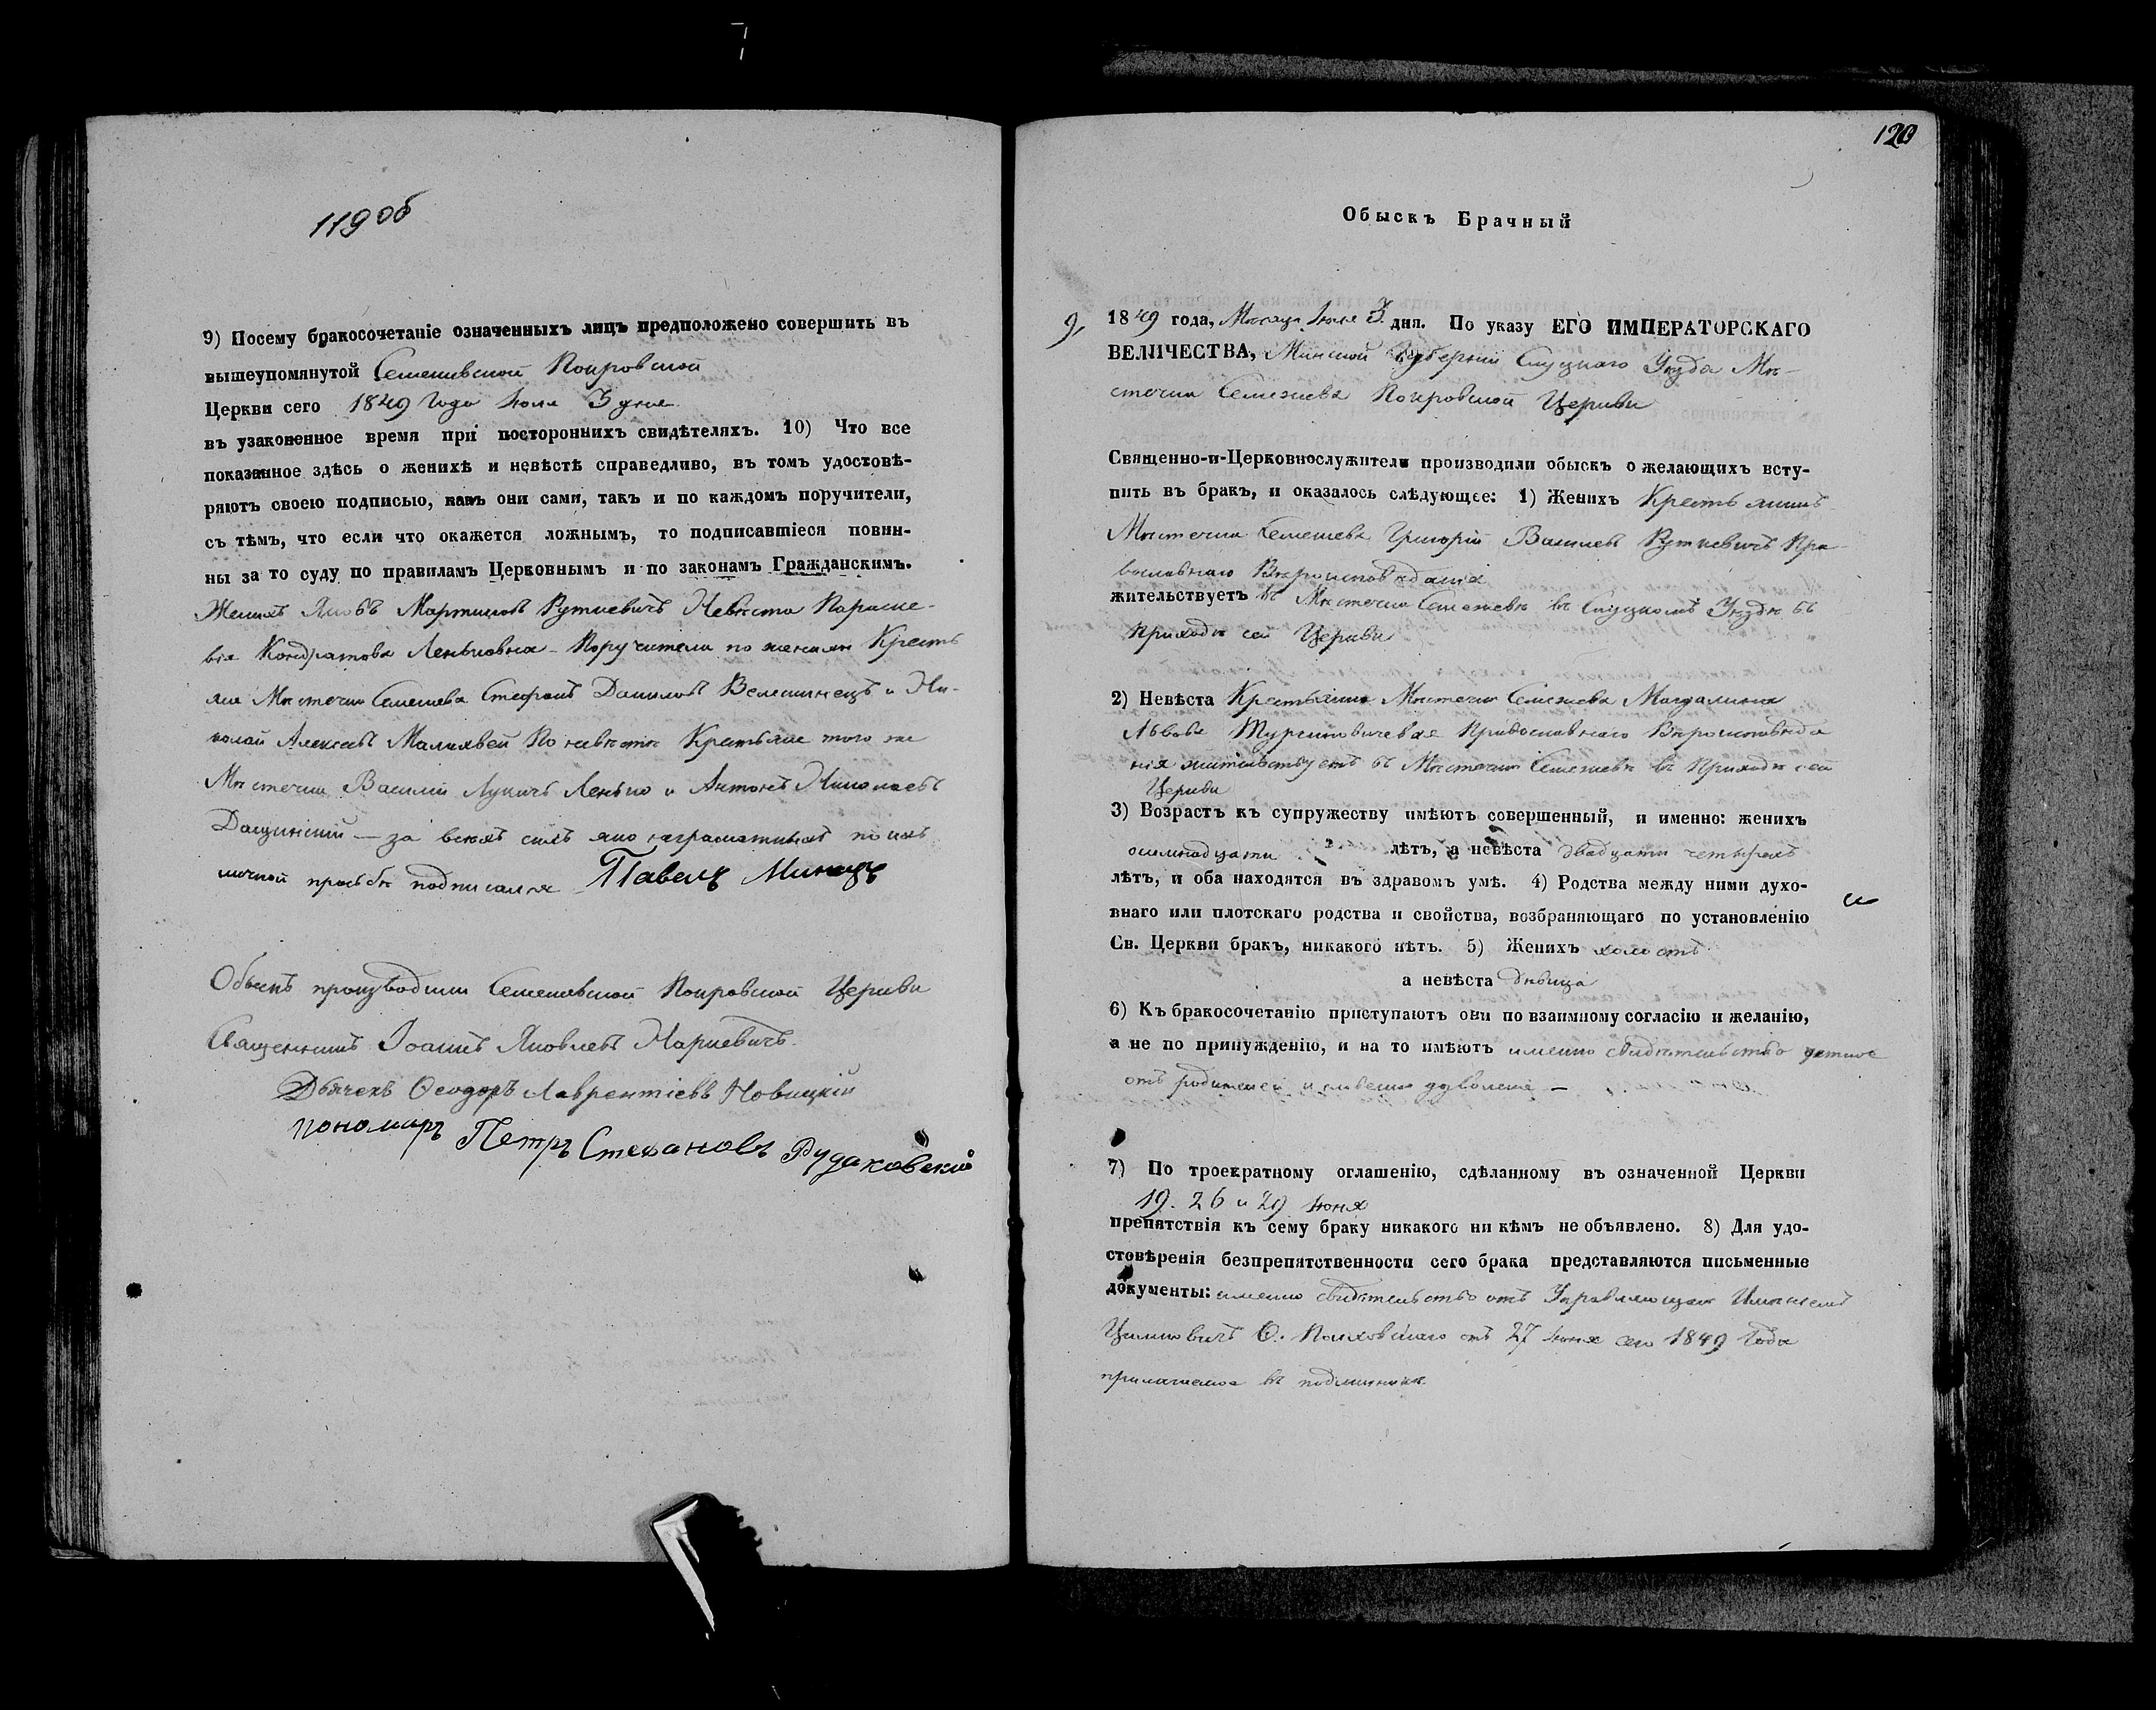 119 об
9) Посему бракосочетаніе означенныхъ лицъ предположено совершить въ
вышеупомянутой Семежевской Покровской
Церкви сего 1849 Года Іюля 3 дня
въ узаконенное время при постороннихъ свидѣтеляхъ. 10) Что все
показанное здѣсь о женихѣ и невѣстѣ справедливо, въ томъ удостовѣ-
ряютъ своею подписью, какъ они сами, такъ и по каждомъ поручители,
съ тѣмъ, что если что окажется ложнымъ, то подписавшіеся повин-
ны за то суду по правиламъ Церковнымъ и по законамъ Гражданскимъ.
Женихъ Яковъ Мартиновъ Руткевичъ Невѣста Параске-
вія Кондратова Леньковна - Поручители по женихѣ Кресть
яне Мѣстечка Семежева Стефанъ Даниловъ Велешинецъ и Ни-
колай Алексѣевъ По невѣстѣ Крестьяне того же
Мѣстечка Василій Лукичъ Ленько и Антонъ Николаевъ
Дащинскій — за всѣхъ сихъ яко неграматныхъ по ихъ
личной прозьбѣ подписался Павелъ
Обыскъ производили Семежевской Покровской Церкви
Священникъ Іоаннъ Яковлевъ Наркевичъ.
Дьячекъ Ѳеодоръ Лаврентіевъ Новицкій
пономарь Петръ Стефановъ Рудаковскій
120
Обыскъ Брачный
9, 1849 года, Мѣсяца Іюля 3 дня. По указу ЕГО ИМПЕРАТОРСКАГО
ВЕЛИЧЕСТВА, Минской Губерніи Слуцкаго Уѣзда Мѣ-
стечка Семежева Покровской Церкви
Священно-и-Церковнослужители производили обыскъ о желающихъ всту-
пить въ бракъ, и оказалось слѣдующее: 1) Женихъ Крестьянинъ
Мѣстечка Семежева Григорій Васильевъ Руткевичъ Пра-
вославнаго Вѣроисповѣданія
жительствуетъ въ Мѣстечкѣ Семежевѣ въ Слуцкомъ Уѣздѣ въ
Приходѣ сей Церкви
2) Невѣста Крестьянка Мѣстечка Семежева Магдалина
Львова Православнаго Вѣроисповѣда
нія жительствуетъ въ Мѣстечкѣ Семежевѣ въ Приходѣ сей
Церкви
3) Возрастъ къ супружеству имѣютъ совершенный, и именно: женихъ
осемнадцати лѣтъ, а невѣста двадцати четырехъ
лѣтъ, и оба находятся въ здравомъ умѣ. 4) Родства между ними духо-
внаго или плотскаго родства и свойства, возбраняющаго по установленію
Св. Церкви бракъ, никакого нѣтъ. 5) Женихъ холостъ
а невѣста дѣвица
6) Къ бракосочетанію приступаютъ они по взаимному согласію и желанію,
а не по принужденію, и на то имѣютъ именно свидѣтельство
отъ родителей дозволеніе —
7) По троекратному оглашенію, сдѣланному въ означенной Церкви
19. 26 и 29 Іюня
препятствія къ сему браку никакого ни кѣмъ не объявлено. 8) Для удо-
стовѣренія безпрепятственности сего брака представляются письменные
документы: именно свидѣтельство отъ Управляющаго Имѣніемъ
отъ 27 Іюня сего 1849 Года
прилагаемое въ подлинникѣ